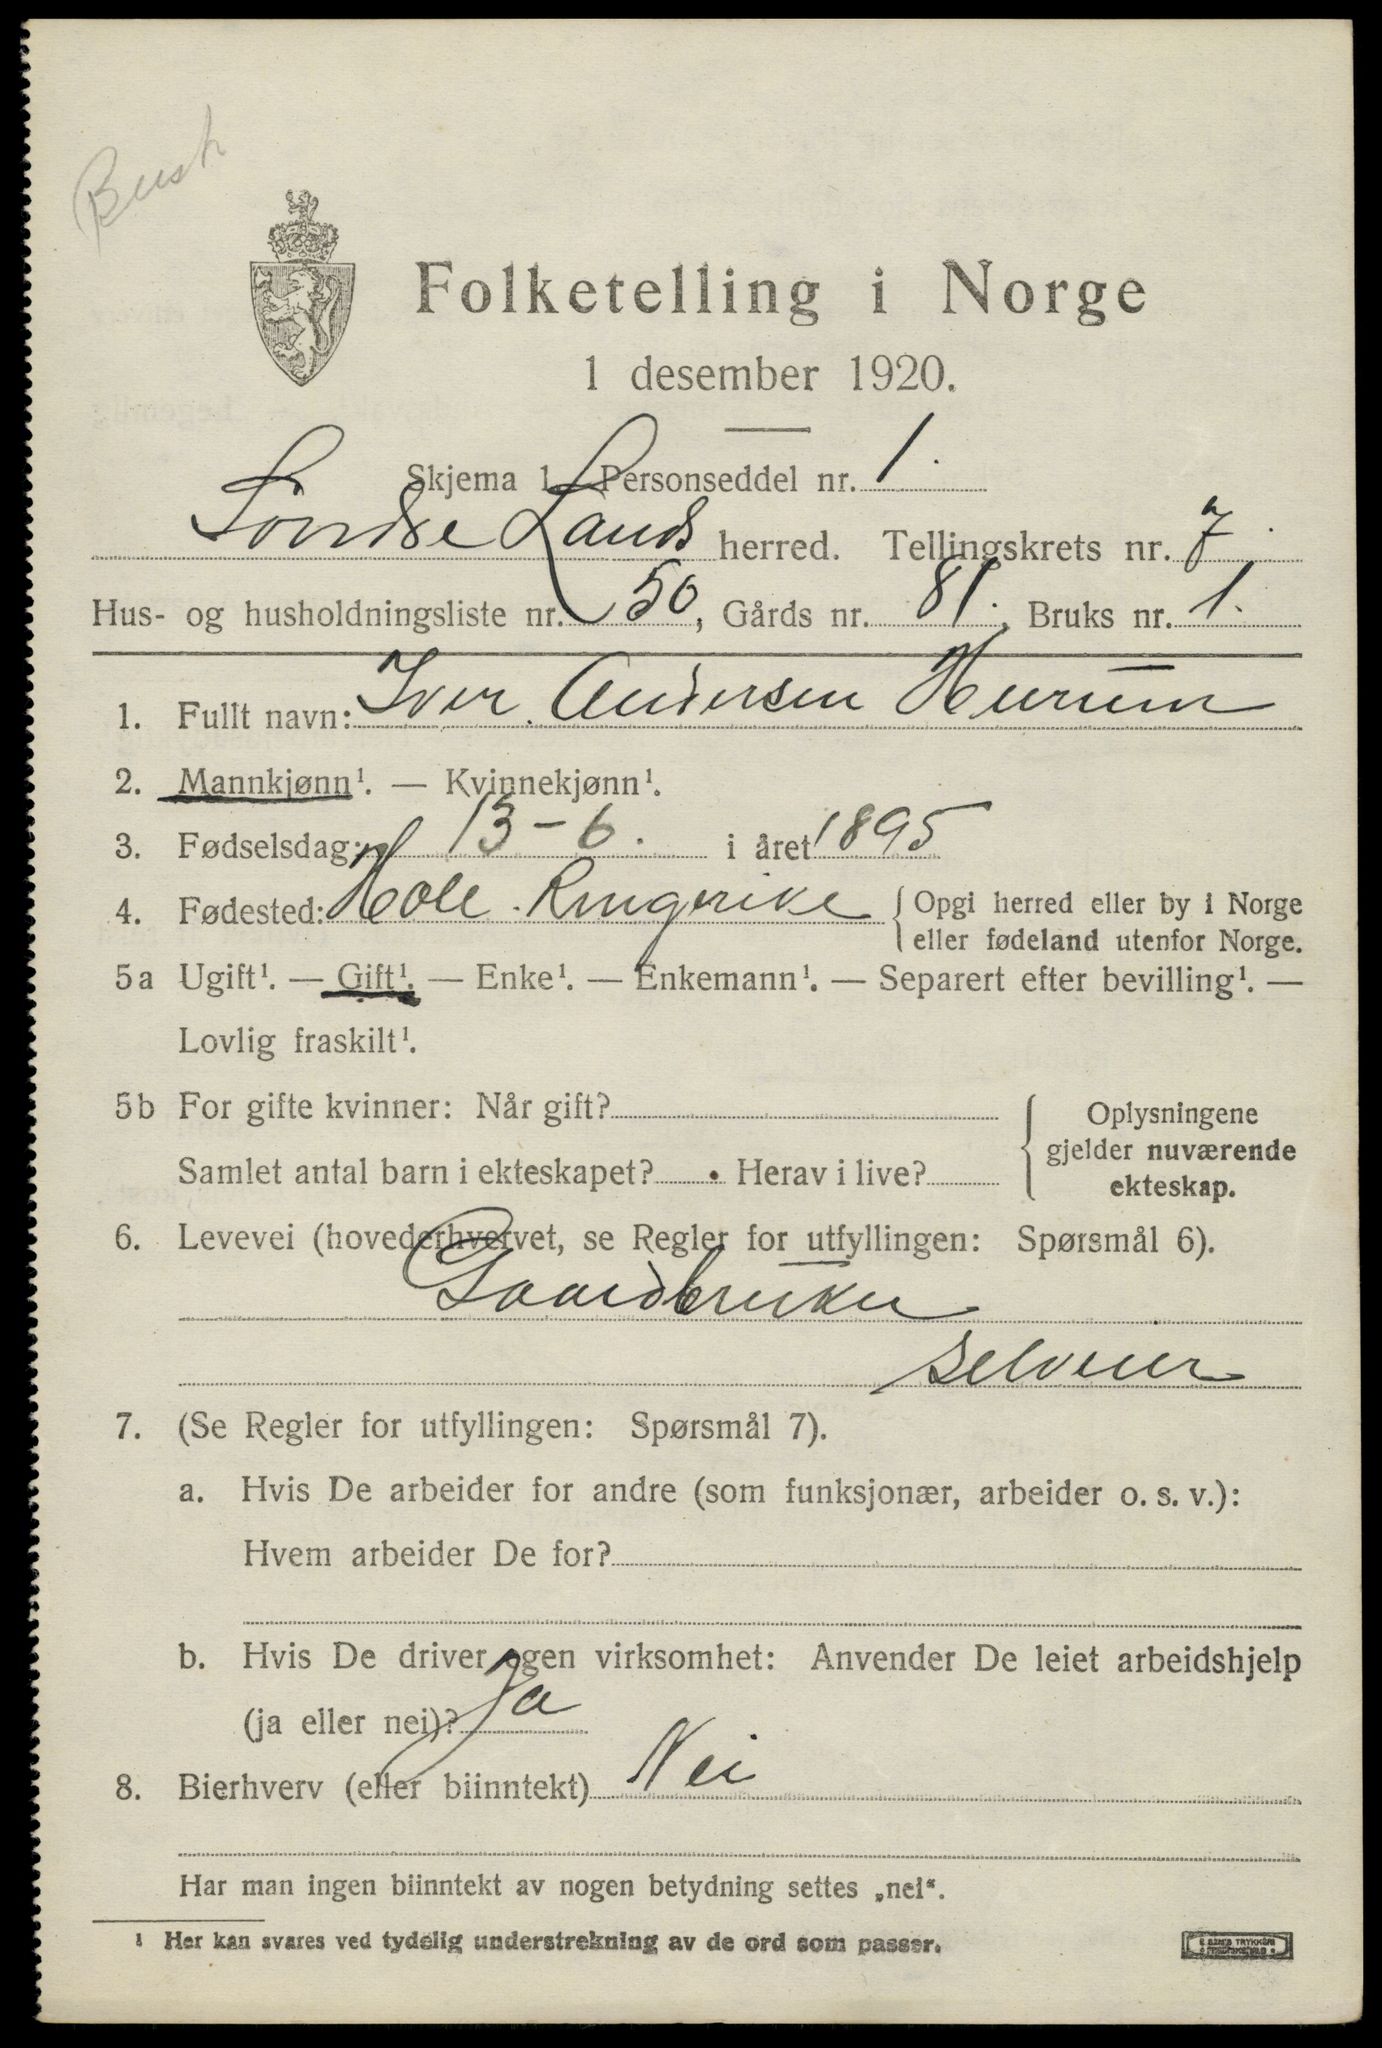 Bush
Folketelling i Norge
1 desember 1920.
Skjema 1. Personseddel nr. 1.
Søndre Lands herred. Tellingskrets nr. 7.
Hus- og husholdningsliste nr. 50, Gårds nr. 81. Bruks nr. 1.
1. Fullt navn: Iver Andersen Hurum
2. Mannkjønn¹. — Kvinnekjønn¹.
3. Fødselsdag: 13-6. i året 1895
4. Fødested: Hole. Ringerike { Opgi herred eller by i Norge
eller fødeland utenfor Norge.
5a Ugift¹. — Gift¹. — Enke¹. — Enkemann¹. — Separert efter bevilling¹. —
Lovlig fraskilt¹.
5b For gifte kvinner: Når gift? { Oplysningene
gjelder nuværende
Samlet antal barn i ekteskapet? Herav i live? ekteskap.
6. Levevei (hovederhvervet, se Regler for utfyllingen: Spørsmål 6).
Gaardbruker
selveier
7. (Se Regler for utfyllingen: Spørsmål 7).
a. Hvis De arbeider for andre (som funksjonær, arbeider o. s. v.):
Hvem arbeider De for?
b. Hvis De driver egen virksomhet: Anvender De leiet arbeidshjelp
(ja eller nei)? Ja
8. Bierhverv (eller biinntekt) Nei
Har man ingen biinntekt av nogen betydning settes „nei“.
¹ Her kan svares ved tydelig understrekning av de ord som passer.